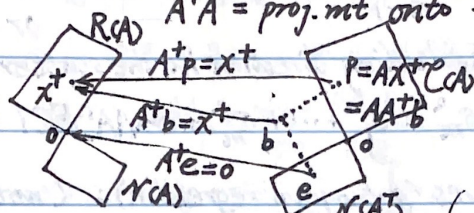 A⁺A = proj. mt onto
R(A)
A⁺p = x⁺
p = Ax⁺ C(A)
x⁺
= AA⁺b
A⁺b = x⁺
b
0
0
A⁺e = 0
e
N(A)
N(Aᵀ)